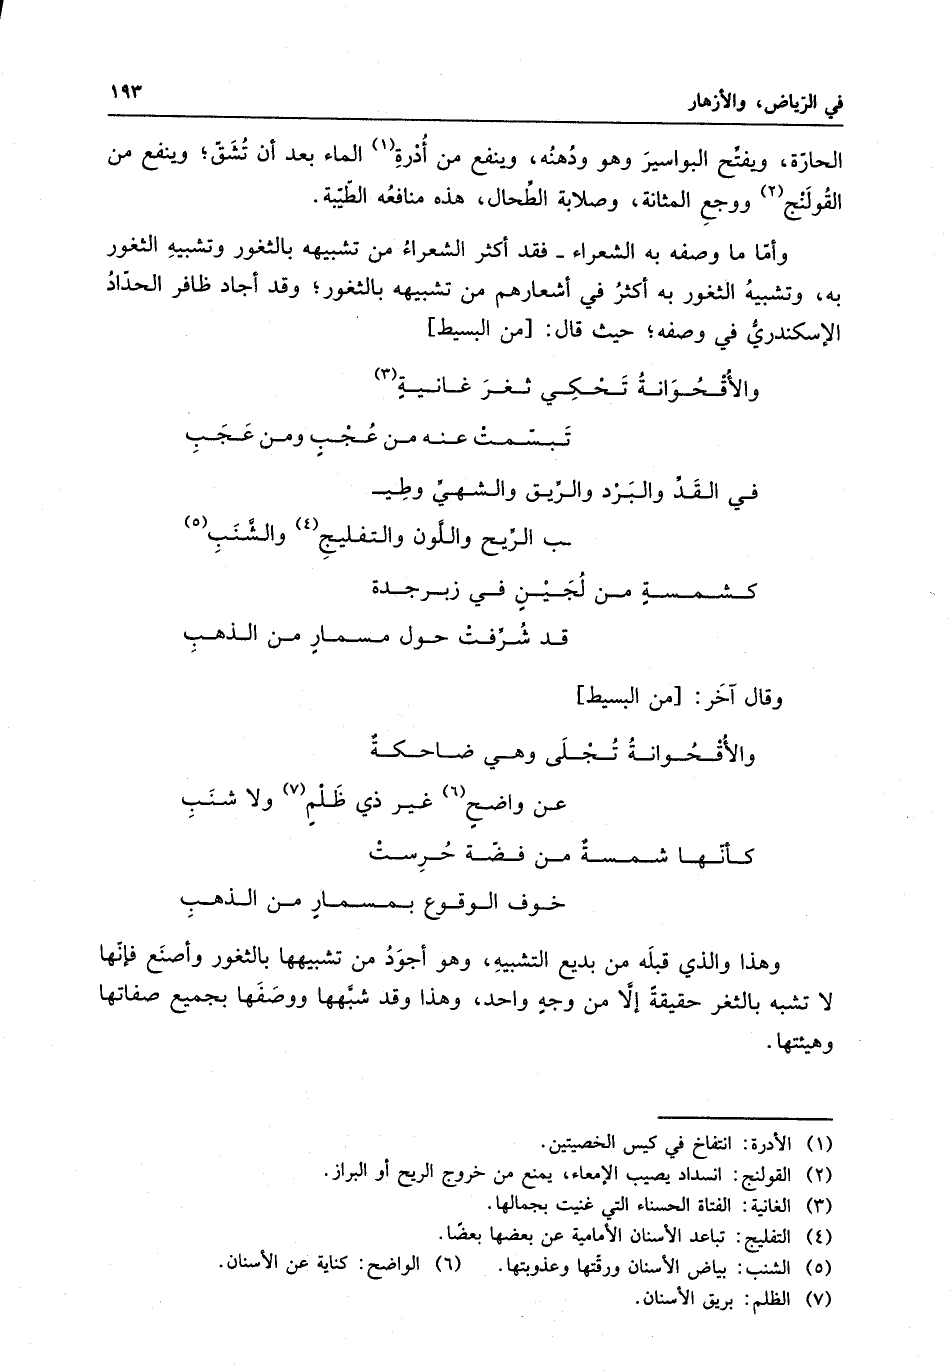 في الرّياض، والأزهار ١٩٣
الحارّة، ويفتّح البواسيرَ وهو ودُهنُه، وينفع من أُدْرةِ(١) الماء بعد أن تُشَقّ؛ وينفع من
القُولَنْج(٢) ووجعِ المثانة، وصلابة الطِّحال، هذه منافعُه الطّيّبة.
وأمّا ما وصفه به الشعراء ـ فقد أكثر الشعراءُ من تشبيهه بالثغور وتشبيهِ الثغور
به، وتشبيهُ الثغور به أكثرُ في أشعارهم من تشبيهه بالثغور؛ وقد أجاد ظافر الحدّادُ
الإسكندريُّ في وصفه؛ حيث قال: [من البسيط]
والأُقْحُوَانةُ تَحْكِي ثغرَ غانيةٍ(٣)
تَبسّمتْ عنه من عُجْبٍ ومن عَجَبِ
في القَدِّ والبَرْد والرِّيق والشهيِّ وطِيـ
ـب الرِّيح واللَّون والتفليجِ(٤) والشَّنَبِ(٥)
كشمسةٍ من لُجَيْنٍ في زبرجدة
قد شُرِّفتْ حول مسمارٍ من الذهبِ
وقال آخَر: [من البسيط]
والأُقْحُوانةُ تُجْلَى وهي ضاحكةٌ
عن واضحٍ(٦) غير ذي ظَلْمٍ(٧) ولا شنَبِ
كأنّها شمسةٌ من فضّة حُرِستْ
خوف الوقوع بمسمارٍ من الذهبِ
وهذا والذي قبلَه من بديع التشبيهِ، وهو أجوَدُ من تشبيهها بالثغور وأصنَع فإنّها
لا تشبه بالثغر حقيقةً إلّا من وجهٍ واحد، وهذا وقد شبَّهها ووصَفَها بجميع صفاتها
وهيئتها.
(١) الأدرة: انتفاخ في كيس الخصيتين.
(٢) القولنج: انسداد يصيب الإمعاء، يمنع من خروج الريح أو البراز.
(٣) الغانية: الفتاة الحسناء التي غنيت بجمالها.
(٤) التفليج: تباعد الأسنان الأمامية عن بعضها بعضًا.
(٥) الشنب: بياض الأسنان ورقّتها وعذوبتها. (٦) الواضح: كناية عن الأسنان.
(٧) الظلم: بريق الأسنان.